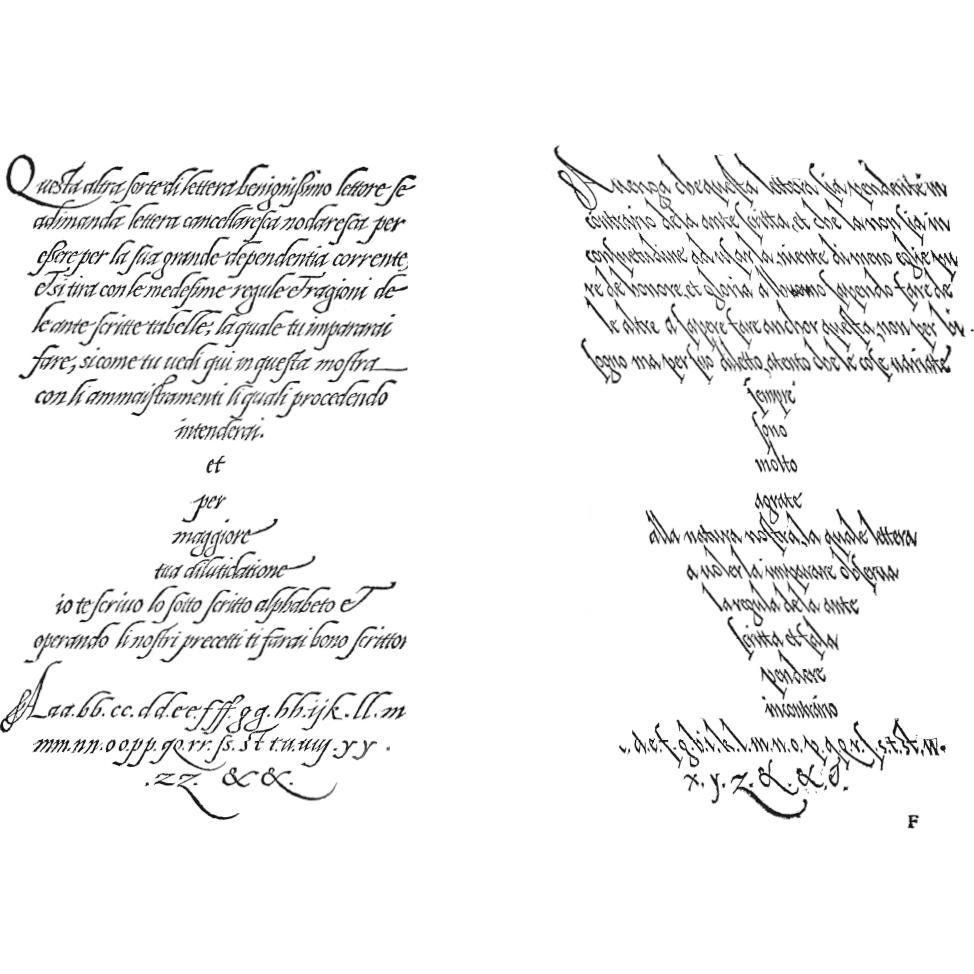 Questa altra sorte di lettera benignissimo lettore se
adimanda lettera cancellaresca nodaresca per
essere per la sua grande dependentia corrente,
et si tira con le medesime regule et ragioni de
le ante scritte tabelle, la quale tu impararai
fare, si come tu vedi qui in questa mostra
con li ammaistramenti li quali procedendo
intenderai.
et
per
maggiore
tua dilucidatione
io te scrivo lo sotto scritto alphabeto et
operando li nostri precetti ti farai bono scrittor
Aaa.bb.cc.dd.ee.fff.gg.hh.ijk.ll.m
mm.nn.oo.pp.qq.rr.ss.st t.u.uuy.yy.
.zz. & &.
Avenga che questa lettera sia pendente in
contrario della ante scritta, et che la non sia in
consuetudine da usarla, niente di meno eglie pu
re de honore, et gloria a l'huomo sapendo fare de
le altre a sapere fare anchor questa, non per bi-
sogno ma per suo diletto, atento che le cose variate
sempre
sono
molto
agrate
alla natura nostra, la quale lettera
a voler la imparare observa
la regula della ante
scritta et fala
pendere
in contrario
.d.e.f.g.h.i.k.l.m.n.o.p.q.r.s.s.t.st.w.
x.y.z.&.&.
F